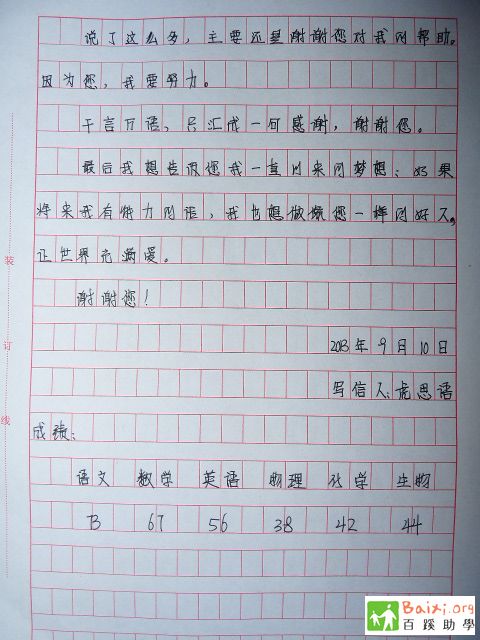 说了这么多，主要还是谢谢您对我的帮助。
因为您，我要努力。
千言万语，只汇成一句感谢，谢谢您。
最后我想告诉您我一直以来的梦想：如果
将来我有能力的话，我也想做像您一样的好人，
让世界充满爱。
谢谢您！
2013年9月10日
写信人：虎思语
成绩：
语文 数学 英语 物理 化学 生物
73 67 56 38 42 44
装
订
线
Baixi.org
百蹊助學